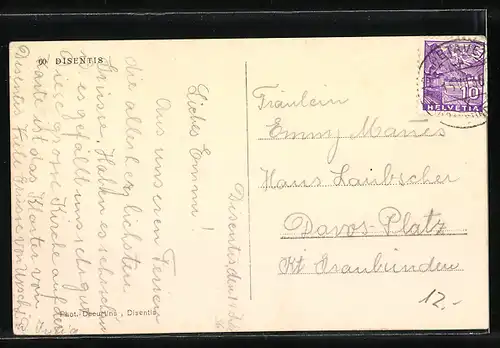 60 DISENTIS
Disentis, den
Liebes Emmi!
Aus unseren Ferien
die allerherzlichsten
Grüsse. Haben es sehr schön
u. es gefällt uns sehr gut.
Diese grosse Kirche auf der
Karte ist das Kloster von
Disentis. Viele Grüsse von
Phot. Decurtins, Disentis
HELVETIA
10
Fräulein
Emmy Manes
Haus Laubscher
Davos-Platz
Kt. Graubünden
12.-